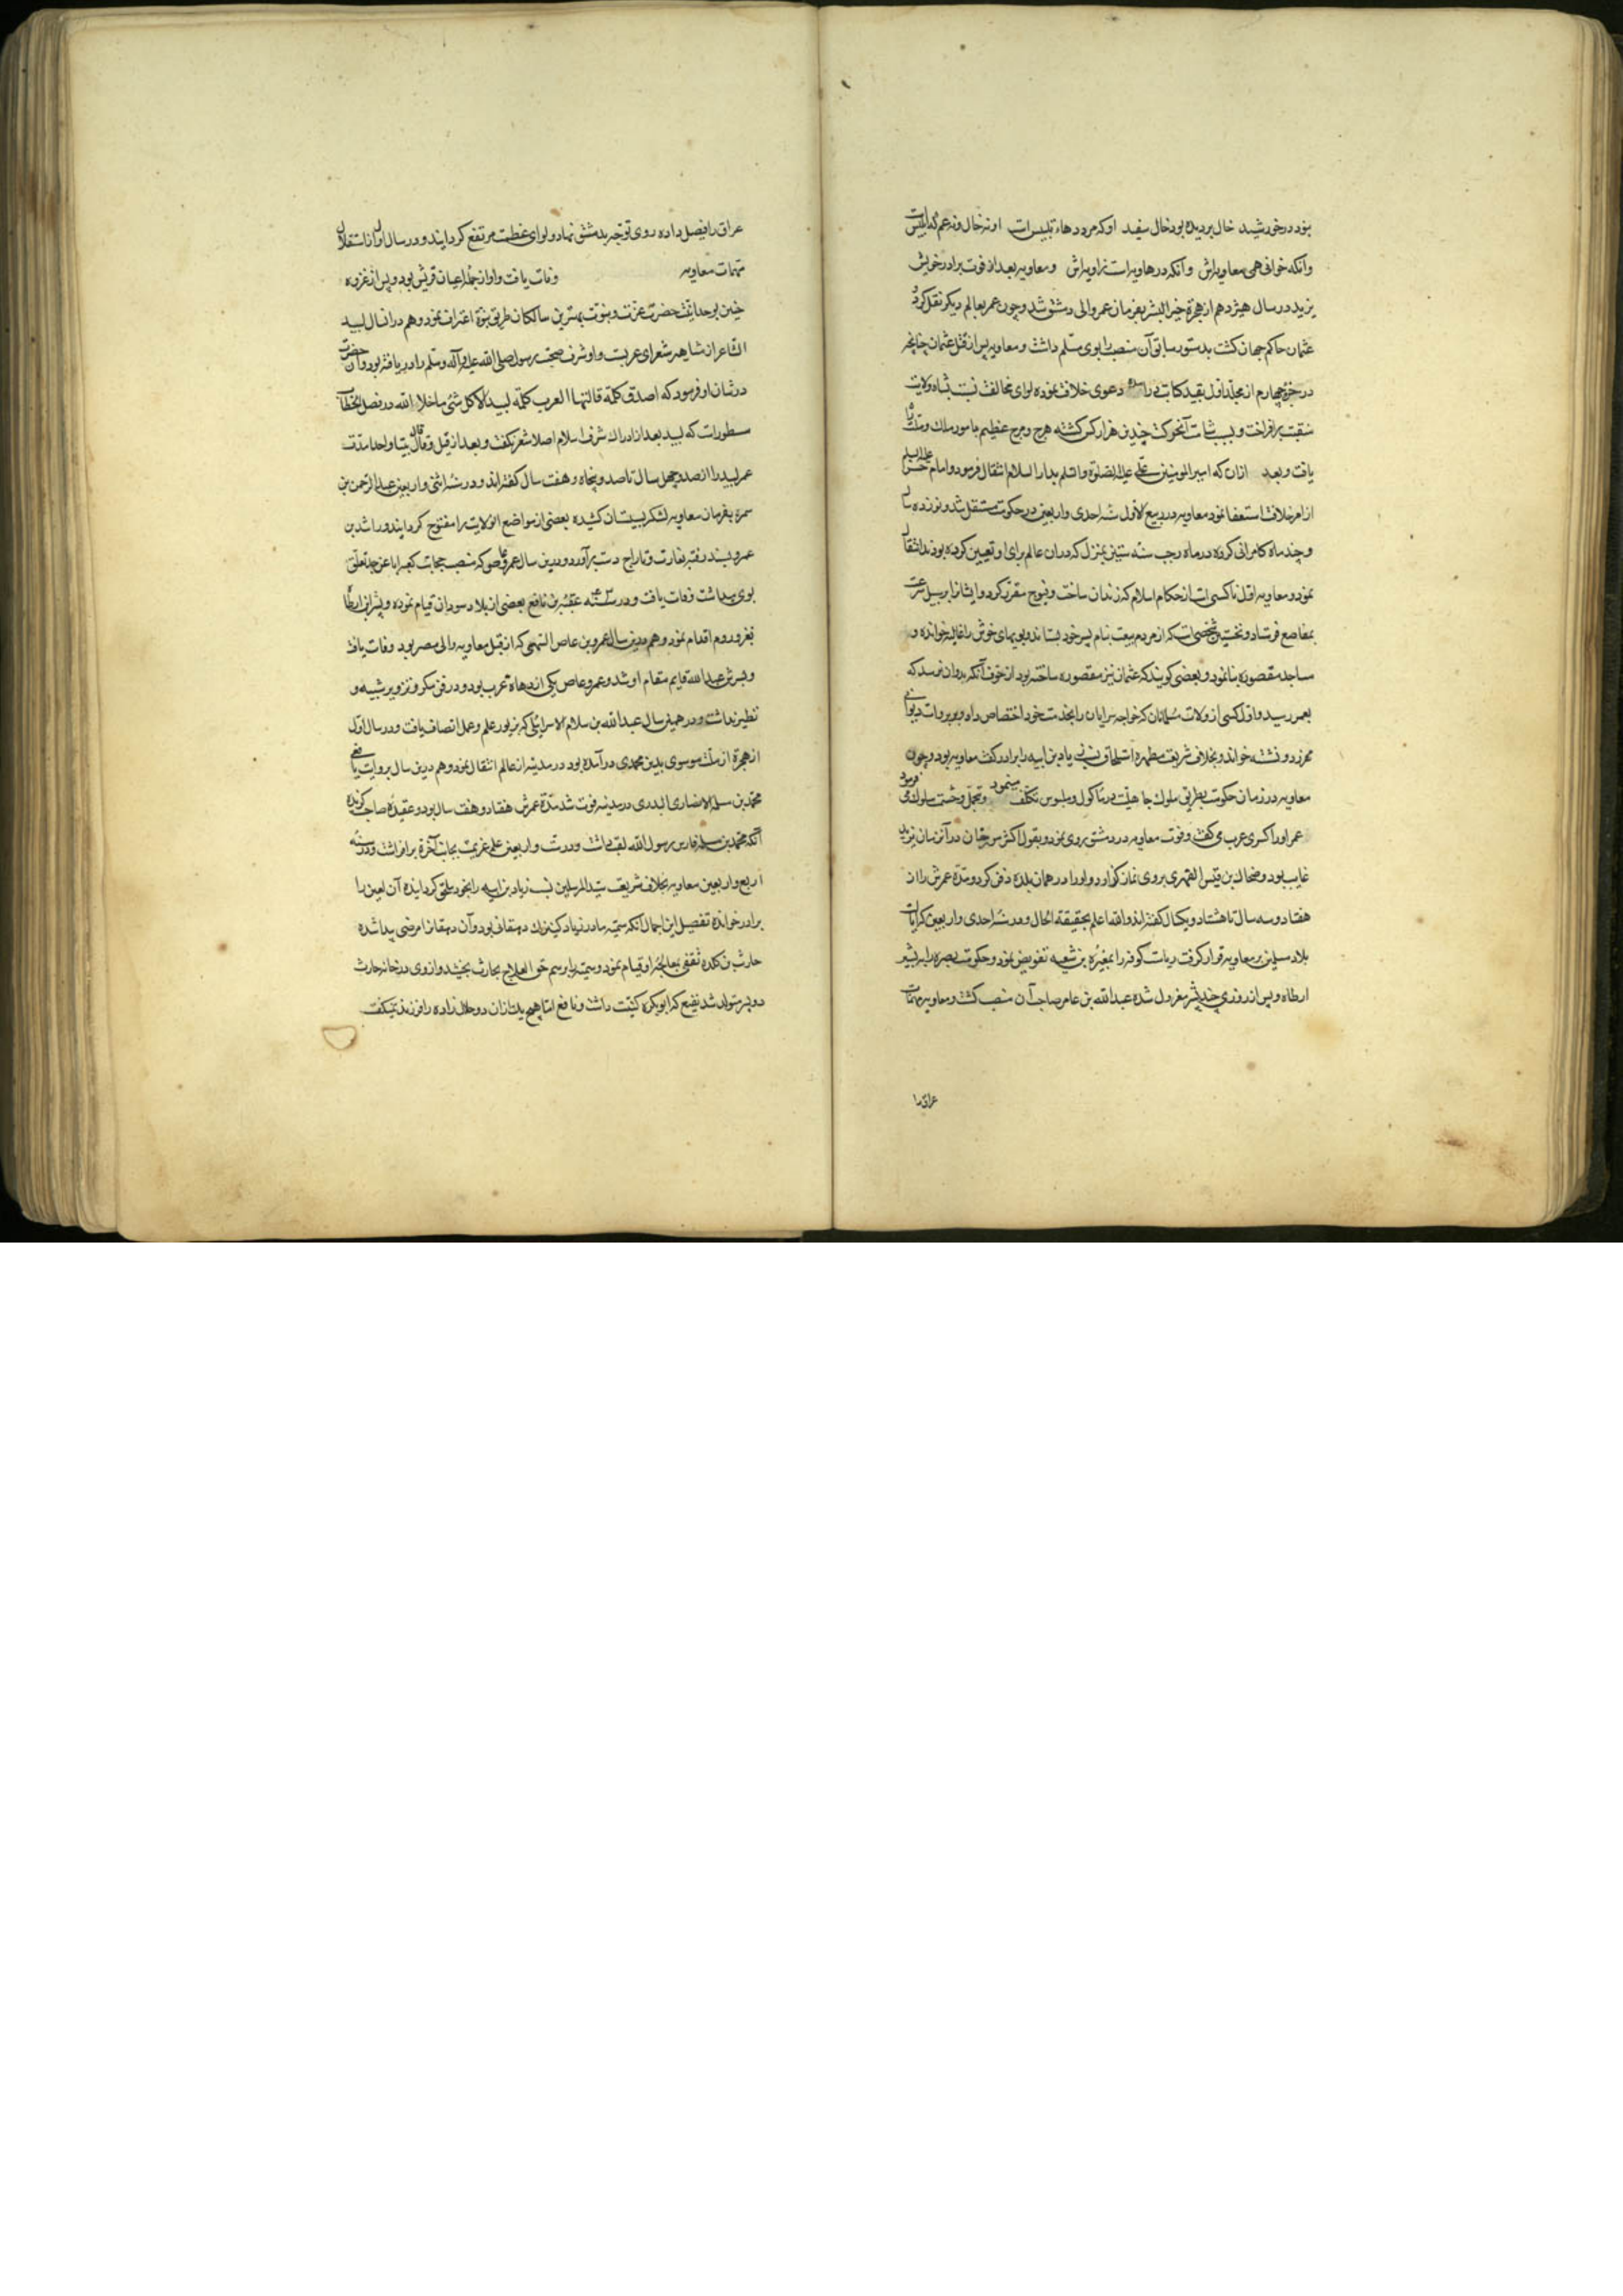 بود در خورشید خال بر دیده بود خال سفید او که مردد هاء تلبیس است او نه خال و نه عم که ابلیس است
وانکه خوانی همی معاویه‌اش وانکه در هاویه است زاویه‌اش و معاویه بعد از فوت برادر خویش
یزید در سال هیژدهم از هجرة خیر البشر بفرمان عمر والی دمشق شد و چون عمر بعالم دیکر نقل کرد و
عثمان حاکم جهان کشت بدستور سابق آن منصب را بوی مسلم داشت و معاویه پس از قتل عثمان چنانچه
در جزو چهارم از مجلد اول بقید کتابت در آمده دعوی خلاف نموده لوای مخالفت نسبت بشاه ولایت
منقبت برافراخت و بسبب شآمت آنحرکت چندین هزار کس کشته هرج و مرج عظیم بامور ملک و ملت راه
یافت و بعد ازان که امیر المومنین علی علیه الصلوة والسلم بدار السلام انتقال فرمود و امام حسن علیه السلم
از امر خلافت استعفا نمود معاویه در ربیع الاول سنه احدی و اربعین در حکومت مستقل شد و نوزده سال
و چند ماه کامرانی کرده در ماه رجب سنه ستین بمنزلی که در ان عالم برای او تعیین کرده بودند انتقال
نمود و معاویه اول ناکسی است از حکام اسلام که زندان ساخت و فیوج مقرر کرد و ایشانرا بر سبیل سرعت
بمقاصع فرستاد و نخستین شخصی است که از مردم بیعت بنام پسر خود بستاند و بویهای خوش را غالیه خوانده و
مساجد مقصوره بنا نمود و بعضی کویند که عثمان نیز مقصوره ساخته بود از خوف آنکه بدوان نرسد که
بعمر رسید و اول کسی از ولات مسلمانان که خواجه سرایان را بخدمت خود اختصاص داد و بر بروات دیوانی
محرز دو نشته خواند و بخلاف شریعت مطهره استلحاق نسب زیاد بن ابیه را برادر کفت معاویه بود و چون
معاویه در زمان حکومت بطریق ملوک جاهلیت در ماکول و ملبوس تکلف مینمود و تجمل و حشمت سلوک می فرمود
عمر او را کسری عرب می کفت و فوت معاویه در دمشق روی نمود و بقول اکثر مورخان در آنزمان یزید
غایب بود و ضحاک بن قیس الفهری بروی نماز کزارد و او را در همان بلده دفن کرد و مدة عمرش را از
هفتاد و سه سال تا هشتاد و یکسال کفته‌اند والله اعلم بحقیقة الحال و در سنه احدی و اربعین که ایالت
بلاد مسلمین بر معاویه قرار کرفت ریاست کوفه را بمغیره بن شعبه تفویض نمود و حکومت بصره را به بشر
ارطاه و پس از روزی چند بشر معزول شده عبدالله بن عامر صاحب آن منصب کشت و معاویه مهمات
عراق را
عراق را فیصل داده روی توجه بدمشق نهاد و لوای عظمت مرتفع کردانید و در سال اول از استقلال
مهمات معاویه وفات یافت و او از جمله اعیان قریش بود و پس از غزوه
حنین بوحدانیت حضرت عزت و نبوت بهترین سالکان طریق نبوة اعتراف نمود و هم در انسال لبید
الشاعر از مشاهیر شعرای عربست و او شرف صحبت رسول صلی الله علیه وآله وسلم را دریافته بود و آن حضرت
در شان او فرمود که اصدق کلمة قالتها العرب کلمة لبید الا کل شئ ما خلا الله در فصل الخطاب
مسطورات که لبید بعد از ادراک شرف اسلام اصلا شعر نکفت و بعد از قیل و قال بیتا واحدا مدت
عمر لبید را از صد و چهل سال تا صد و پنجاه و هفت سال کفته‌اند و در سنه اثنی و اربعین عبد الرحمن بن
سمره بفرمان معاویه لشکر بسیستان کشیده بعضی از مواضع انولایت را مفتوح کردانید و راشد بن
عمرو بسند رفته بغارت و تاراج دست برآورد و در ین سال عمرو که منصب حجابت کعبه ابا عن جد تعلق
بوی میداشت وفات یافت و در سنه ۴۳ عقبه بن نافع بعضی از بلاد سودان قیام نموده و بشر بن ارطاة
بغزو روم اقدام نمود و هم درین سال عمرو بن عاص السهمی که از قبل معاویه والی مصر بود وفات یافت
و پسرش عبد الله قایم مقام او شد و عمرو عاص یکی از دهاة عرب بود و در فن مکر و تزویر شبیه و
نظیر نداشت و در همین سال عبد الله بن سلام الاسرائیلی که بزیور علم و عمل اتصاف یافت و در سال اول
از هجرة از ملت موسوی بدین محمدی در آمده بود در مدینه از عالم انتقال نمود و هم درین سال بروایت یافعی
محمد بن سلمه الانصاری البدری در مدینه فوت شد مدة عمرش هفتاد و هفت سال بود و عقیده صاحب کزیده
آنکه محمد بن مسلمه فارس رسول الله لقب داشت و در ست و اربعین علم عزیمت بجانب آخرة برافراشت و در سنه
اربع و اربعین معاویه بخلاف شریعت سید المرسلین نسب زیاد بن ابیه را بخود ملحق کردانیده آن لعین را
برادر خوانده تفصیل این اجمال آنکه سمیه مادر زیاد کنیزک دهقانی بود و آن دهقانرا مرضی پیدا شده
حارث بن کلده ثقفی بمعالجه او قیام نمود و سمیه را برسم حق العلاج بحارث بخشید و از وی در خانه حارث
دو پسر متولد شد نفیع که ابو بکره کنیت داشت و نافع اما هیچ یک از ان دو حلال زاده را فرزند نمیکفت